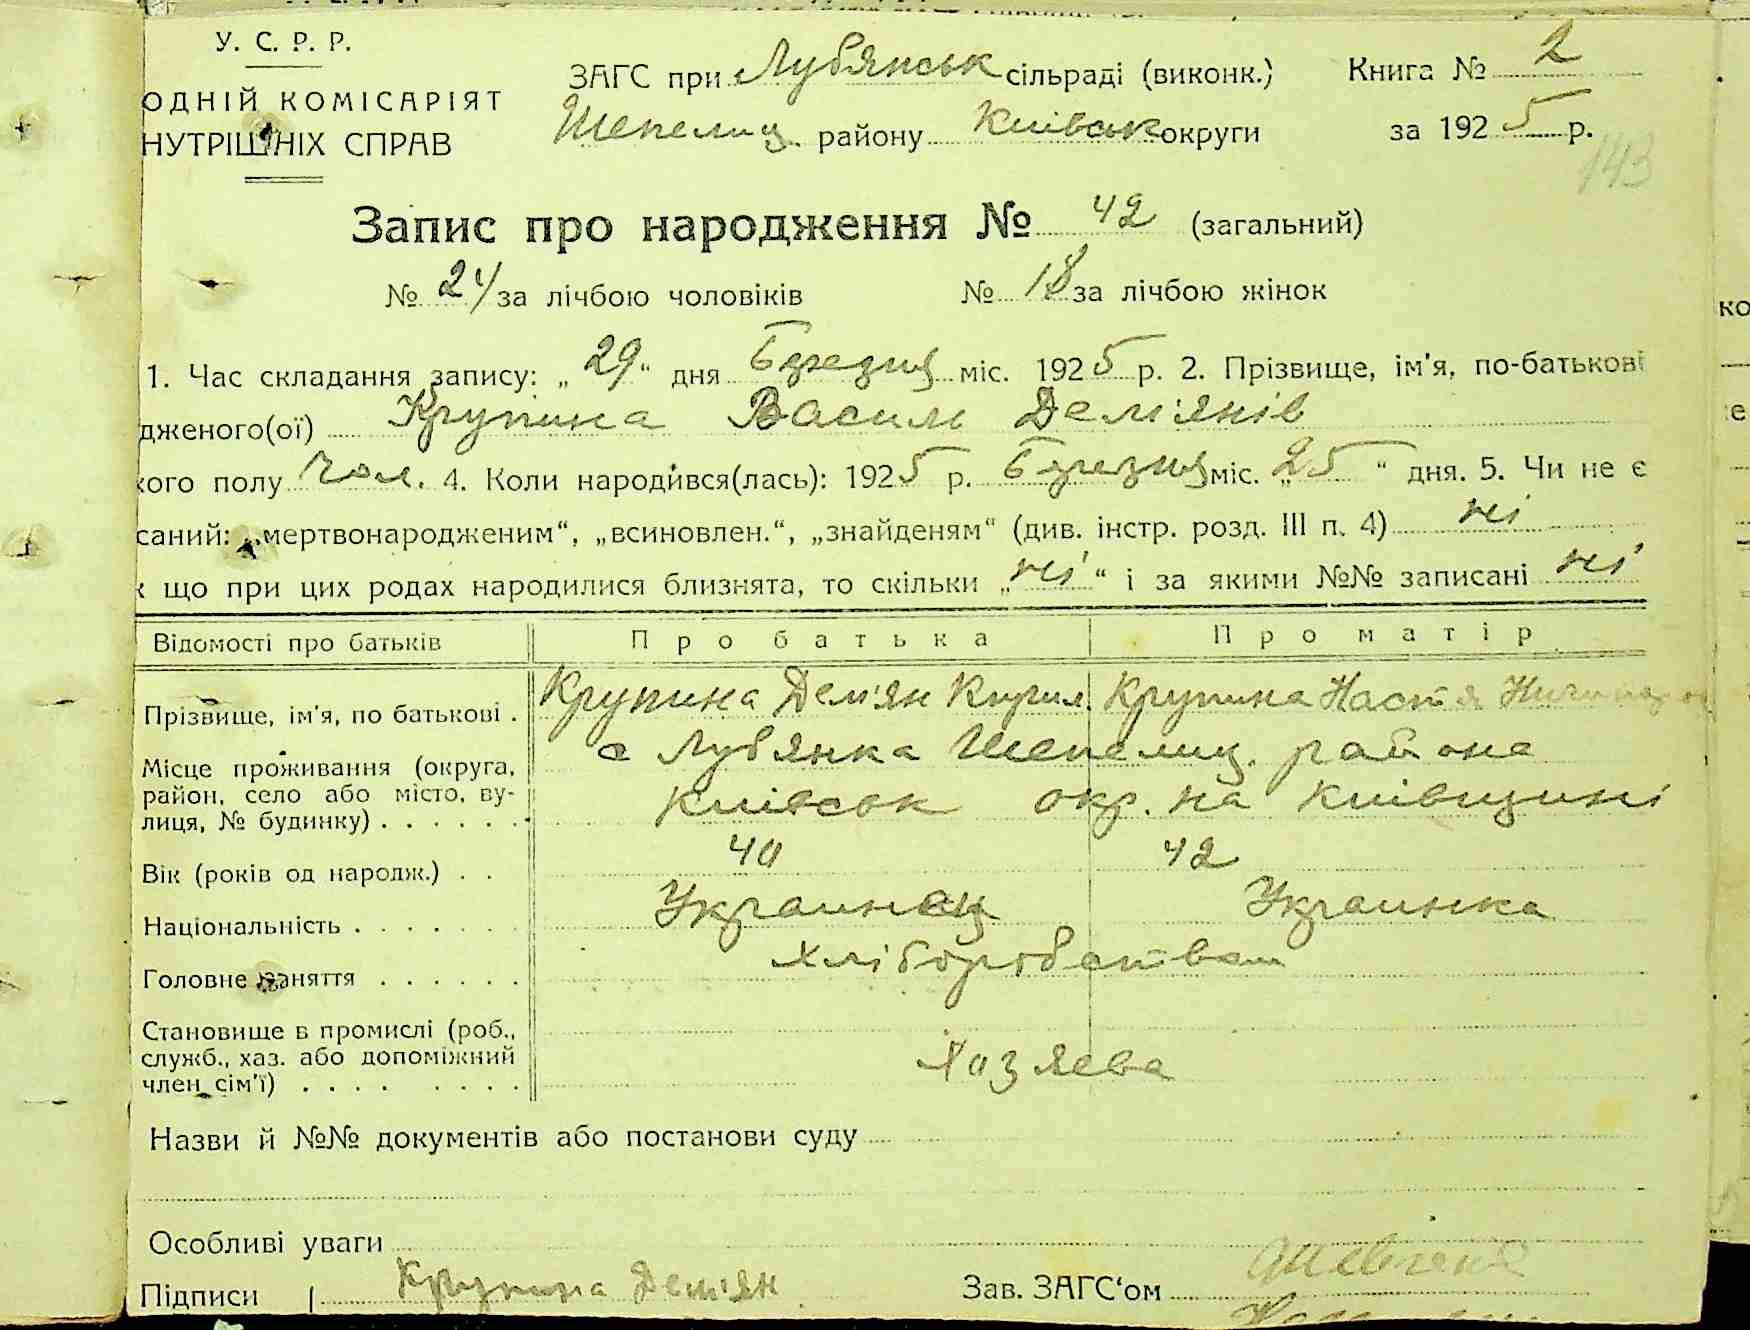 У. С. Р. Р.
ОДНІЙ КОМІСАРІЯТ
НУТРІШНІХ СПРАВ
ЗАГС при Лубянськ сільраді (виконк.) Книга № 2
Шепелиц. району Київськ округи за 1925 р.
143
Запис про народження № 42 (загальний)
№ 24 за лічбою чоловіків № 18 за лічбою жінок
1. Час складання запису: „29“ дня Березня міс. 1925 р. 2. Прізвище, ім'я, по-батькові
дженого(ої) Крупина Василь Дем'янів
кого полу Чол. 4. Коли народився(лась): 1925 р. Березня міс. „25“ дня. 5. Чи не є
саний: „мертвонародженим“, „всиновлен.“, „знайденям“ (див. інстр. розд. III п. 4) ні
к що при цих родах народилися близнята, то скільки „ні“ і за якими №№ записані ні
Відомості про батьків Про батька Про матір
Прізвище, ім'я, по батькові . Крупина Дем'ян Кирил. Крупина Настя
Місце проживання (округа, район, село або місто, вулиця, № будинку) . . . . . . с Лубянка Шепелиц. района
Київськ окр. на Київщині
Вік (років од народж.) . . 40 42
Національність . . . . . . . Украинец Украинка
Головне заняття . . . . . . Хліборобством
Становище в промислі (роб., служб., хаз. або допоміжний член сім'ї) . . . . . . . . Хазяева
Назви й №№ документів або постанови суду
Особливі уваги
Підписи Крупина Дем'ян Зав. ЗАГС'ом